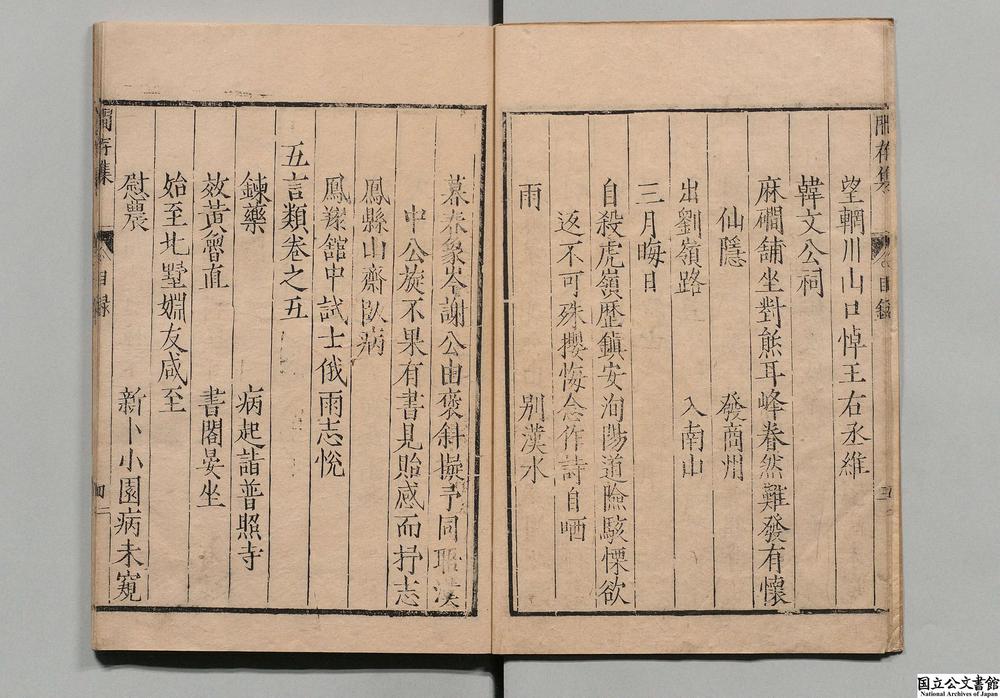 望輞川山口悼王右丞維
韓文公祠
麻磵舖坐對熊耳峰眷然難發有懷
仙隱 發商州
出劉嶺路 入南山
三月晦日
自殺虎嶺歷鎮安洵陽道險駭慄欲
返不可殊攖悔念作詩自哂
雨 別漢水
暮春象岑謝公由褒斜擬予同聚漢
中公旋不果有書見貽感而抒志
鳳縣山齋臥病
鳳翔舘中試士俄雨志悅
五言類卷之五
鍊藥 病起詣普照寺
效黃魯直 書閣晏坐
始至北墅婣友咸至
慰農 新卜小園病未窺
集
目録
國立公文書館
National Archives of Japan